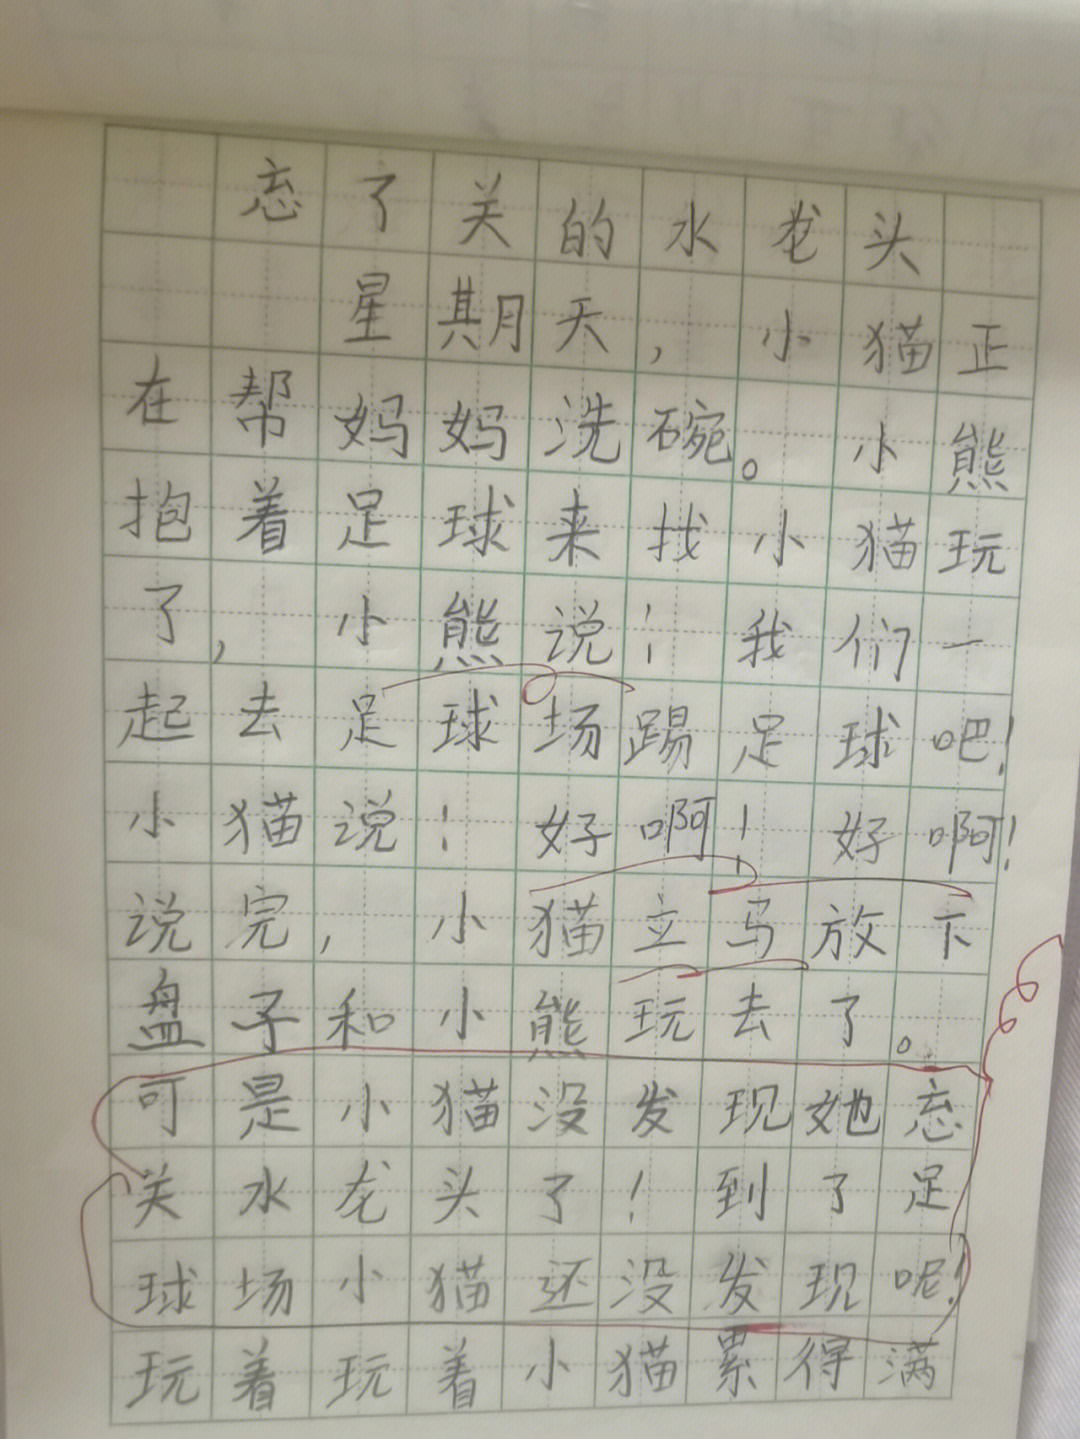 忘了关的水龙头
星期天，小猫正
在帮妈妈洗碗。小熊
抱着足球来找小猫玩
了，小熊说：我们一
起去足球场踢足球吧！
小猫说：好啊！好啊！
说完，小猫立马放下
盘子和小熊玩去了。
可是小猫没发现她忘
关水龙头了！到了足
球场小猫还没发现呢！
玩着玩着小猫累得满